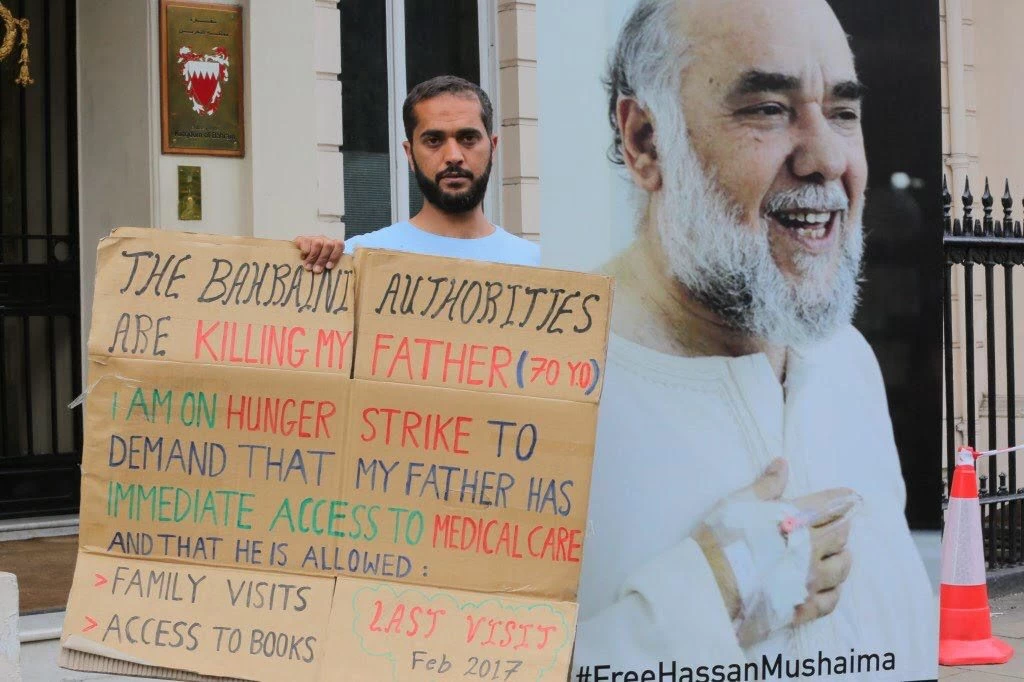 سفارة
مملكة البحرين
Kingdom of Bahrain
THE BAHRAINI AUTHORITIES
ARE KILLING MY FATHER (70 Y.O)
I AM ON HUNGER STRIKE TO
DEMAND THAT MY FATHER HAS
IMMEDIATE ACCESS TO MEDICAL CARE
AND THAT HE IS ALLOWED :
> FAMILY VISITS
> ACCESS TO BOOKS
LAST VISIT
Feb 2017
#FreeHassanMushaima